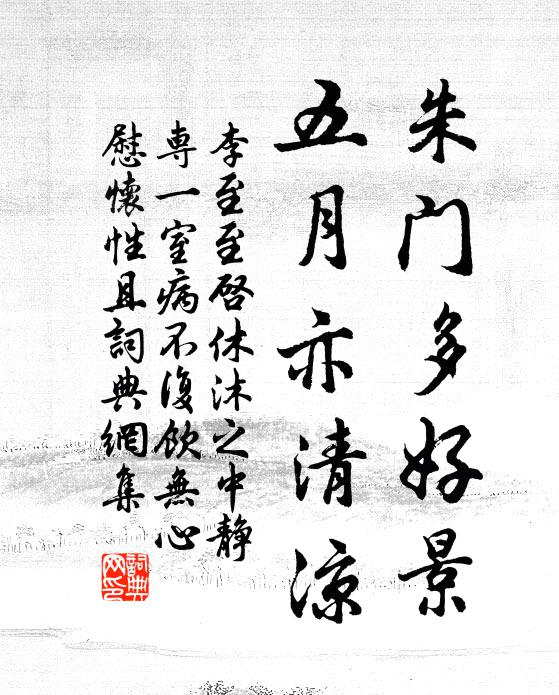 朱门多好景
五月亦清凉
李至至啓休沐之中静
専一室病不復飲無心
慰懷性且詞典網集
詞典
网印